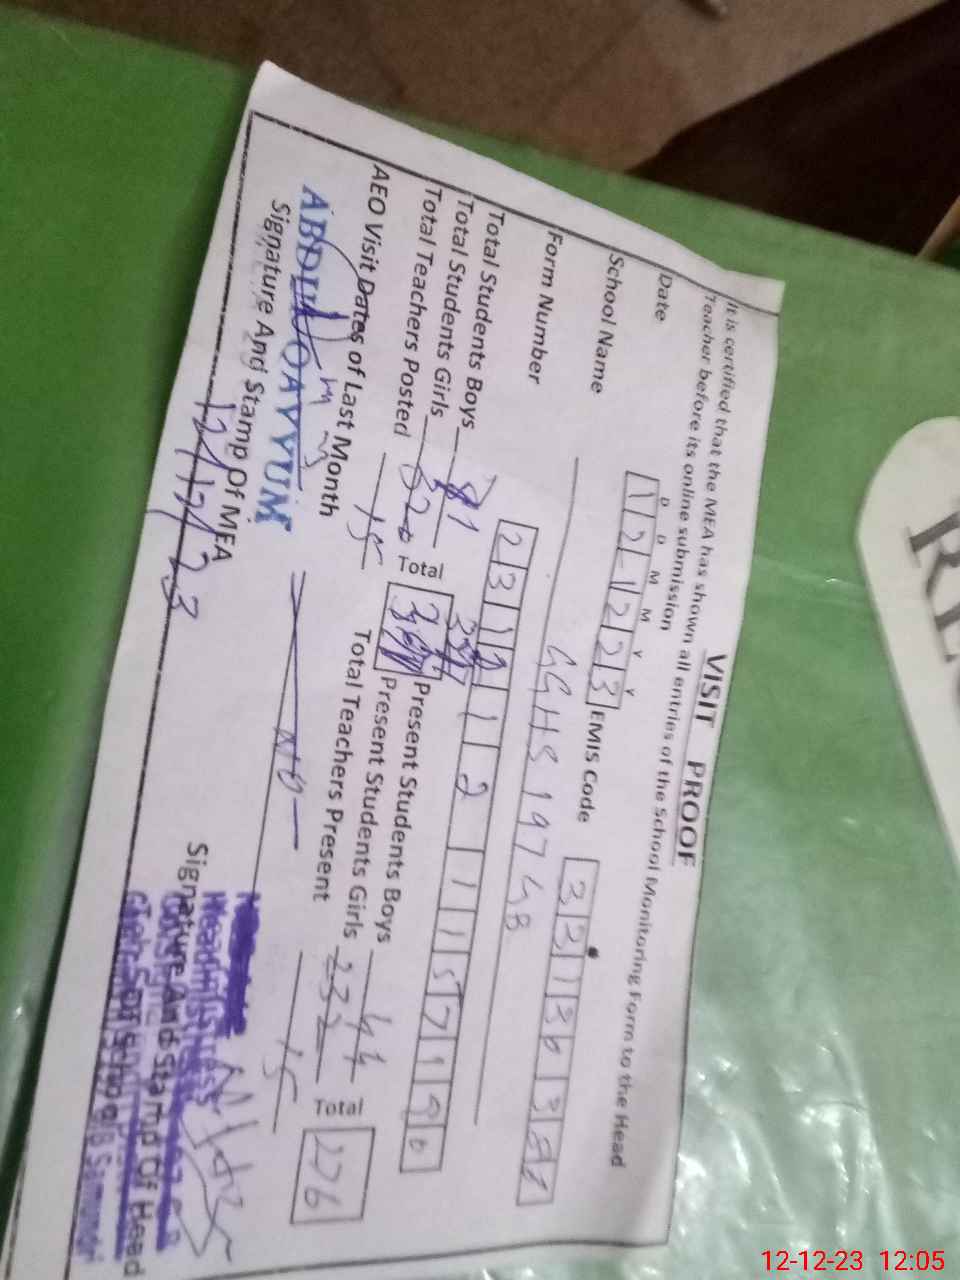 VISIT PROOF
It is certified that the MEA has shown all entries of the School Monitoring Form to the Head
Teacher before its online submission
D D M M Y Y
Date 1 2 1 2 2 3 EMIS Code 3 3 1 3
School Name GGHS 197 GB
Form Number 2 3 1 2 1 2 1 1 5 7 1 9 0
Total Students Boys 81 Present Students Boys 44
Total Students Girls 320 Total Present Students Girls 232 Total 276
Total Teachers Posted 15 Total Teachers Present 15
AEO Visit Dates of Last Month
ABDUL QAYYUM
Signature And Stamp Of MEA Signature And Stamp Of Head
12/12/23
Headmistress
12-12-23 12:05